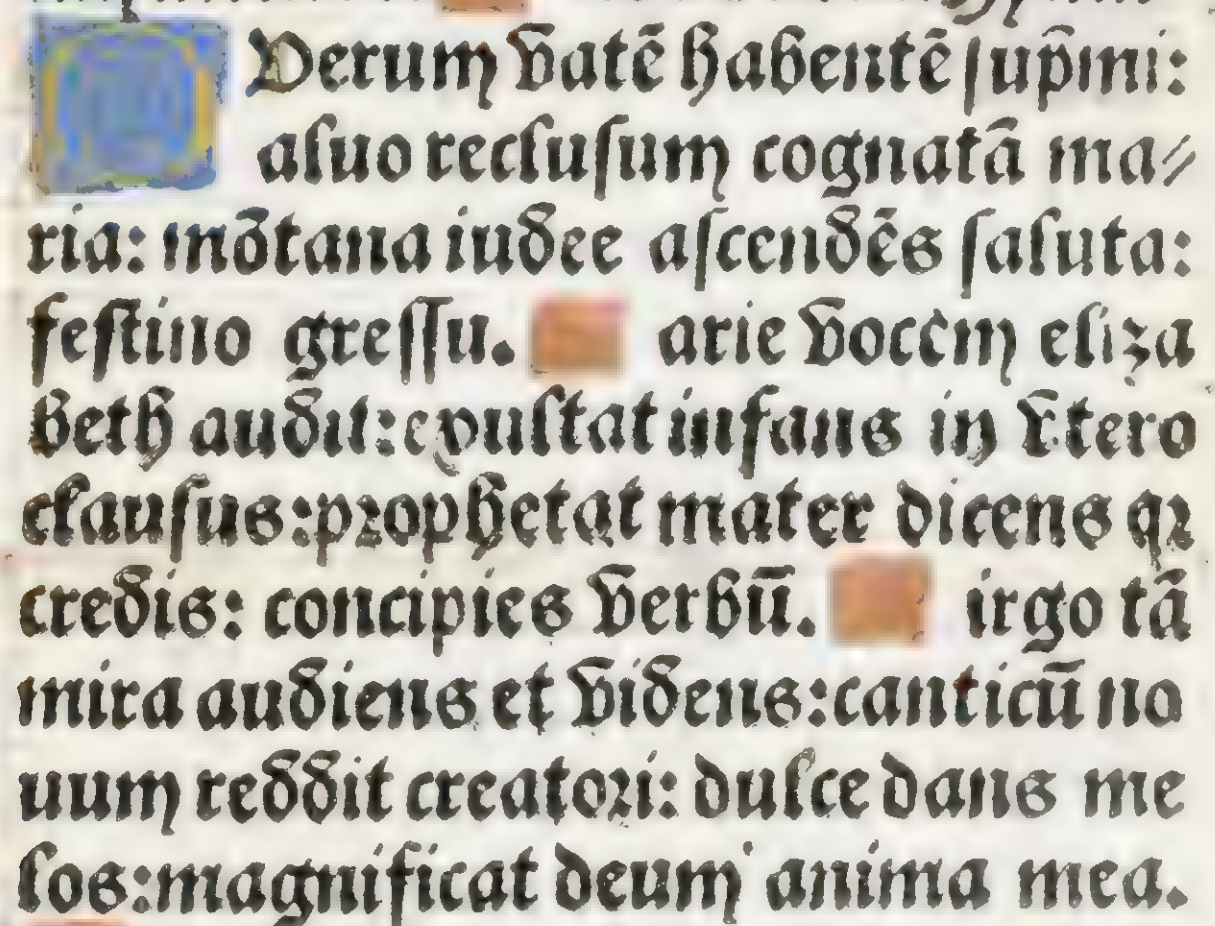 Verum vatē habentē sup̄mi:
aluo reclusum cognatā ma⸗
ria: mōtana iudee ascendēs saluta:
festino gressu. arie vocem eliza
beth audit: exultat infans in vtero
clausus: prophetat mater dicens qꝛ
credis: concipies verbū. irgo tā
mira audiens et videns: canticū no
uum reddit creatori: dulce dans me
los: magnificat deum anima mea.